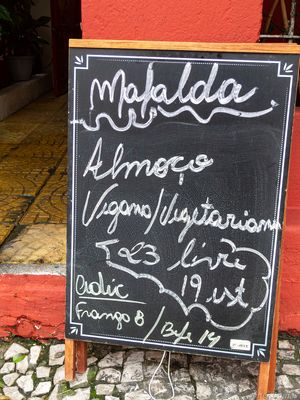 Mafalda
Almoço
Vegano/Vegetariano
23 livre
19 ust
Frango 8 / Bife 14